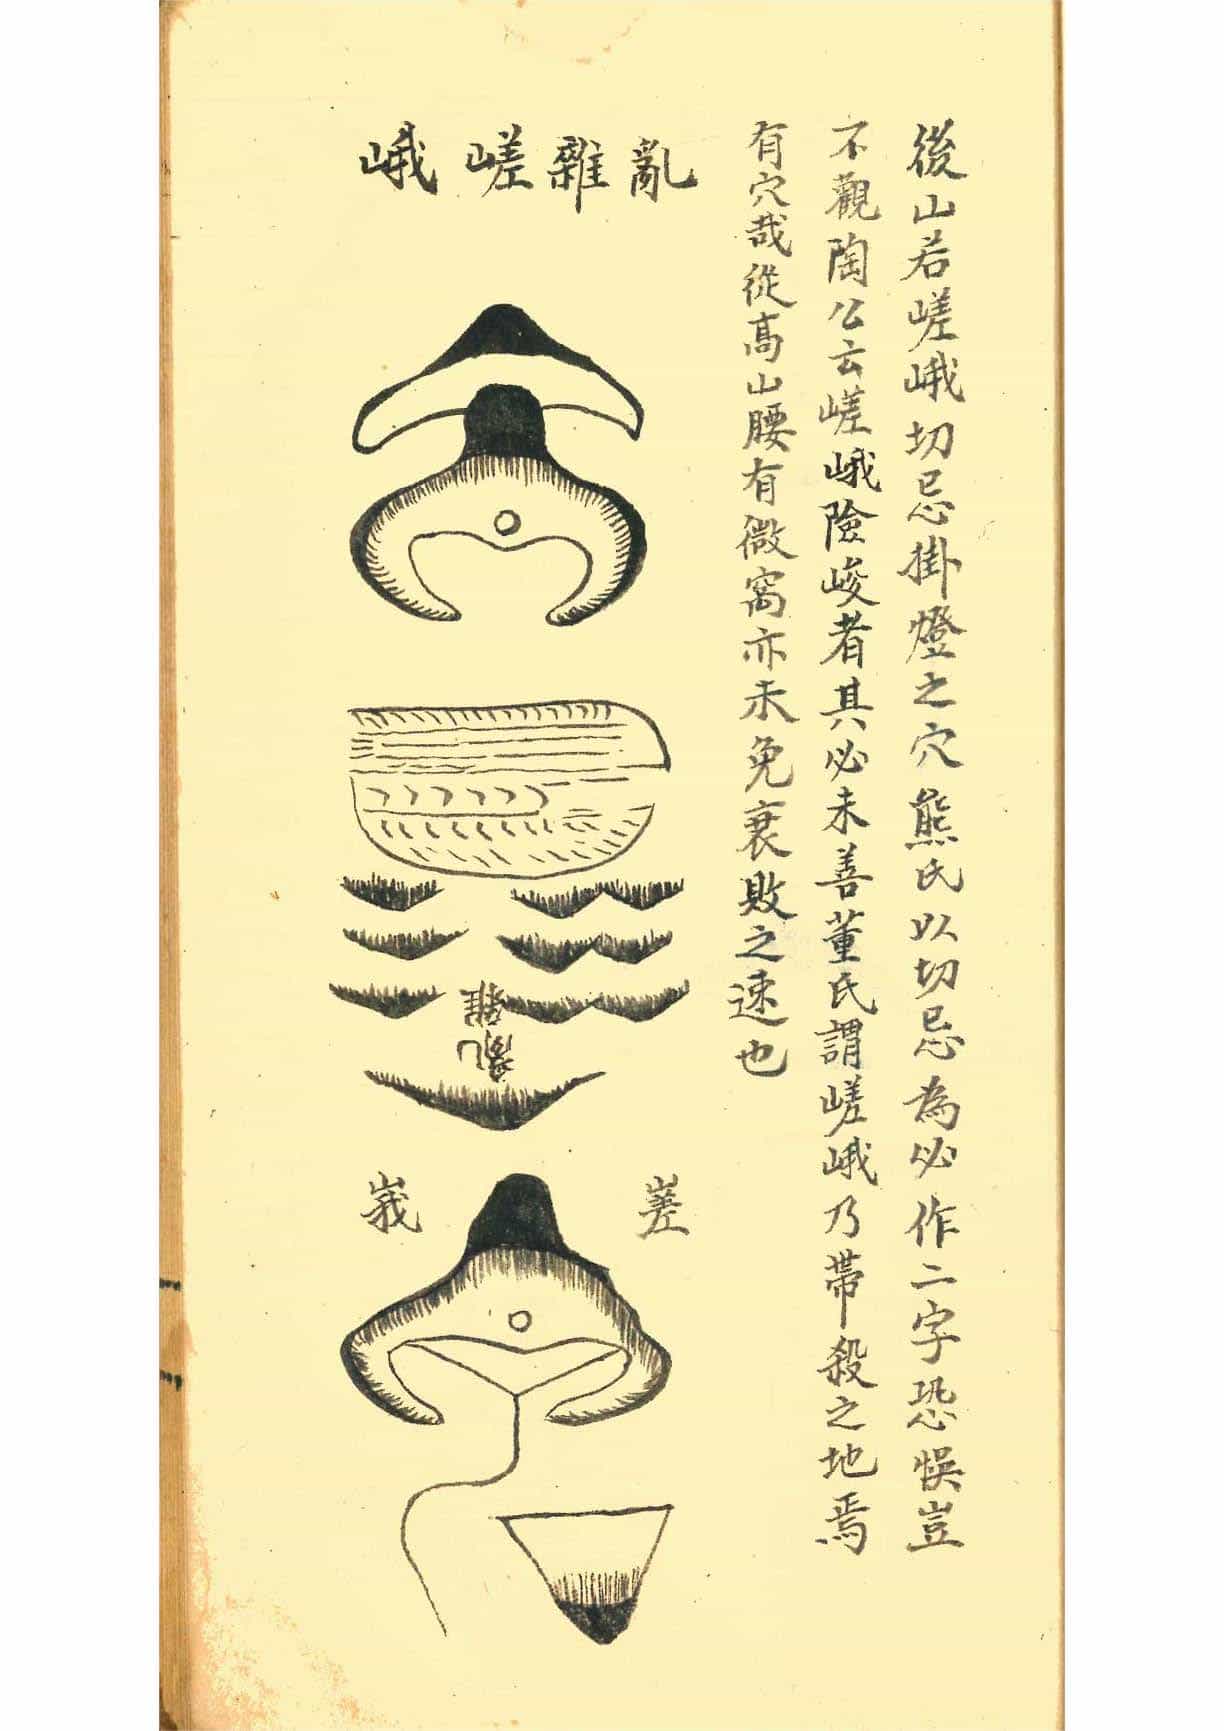 後山若嵯峨切忌掛燈之穴熊氏以切忌為必作二字恐悞豈
不觀陶公云嵯峨險峻者其必未善董氏謂嵯峨乃帶殺之地焉
有穴哉從高山腰有微窩亦未免衰敗之速也
亂雜嵯峨
雜亂
嵳峩